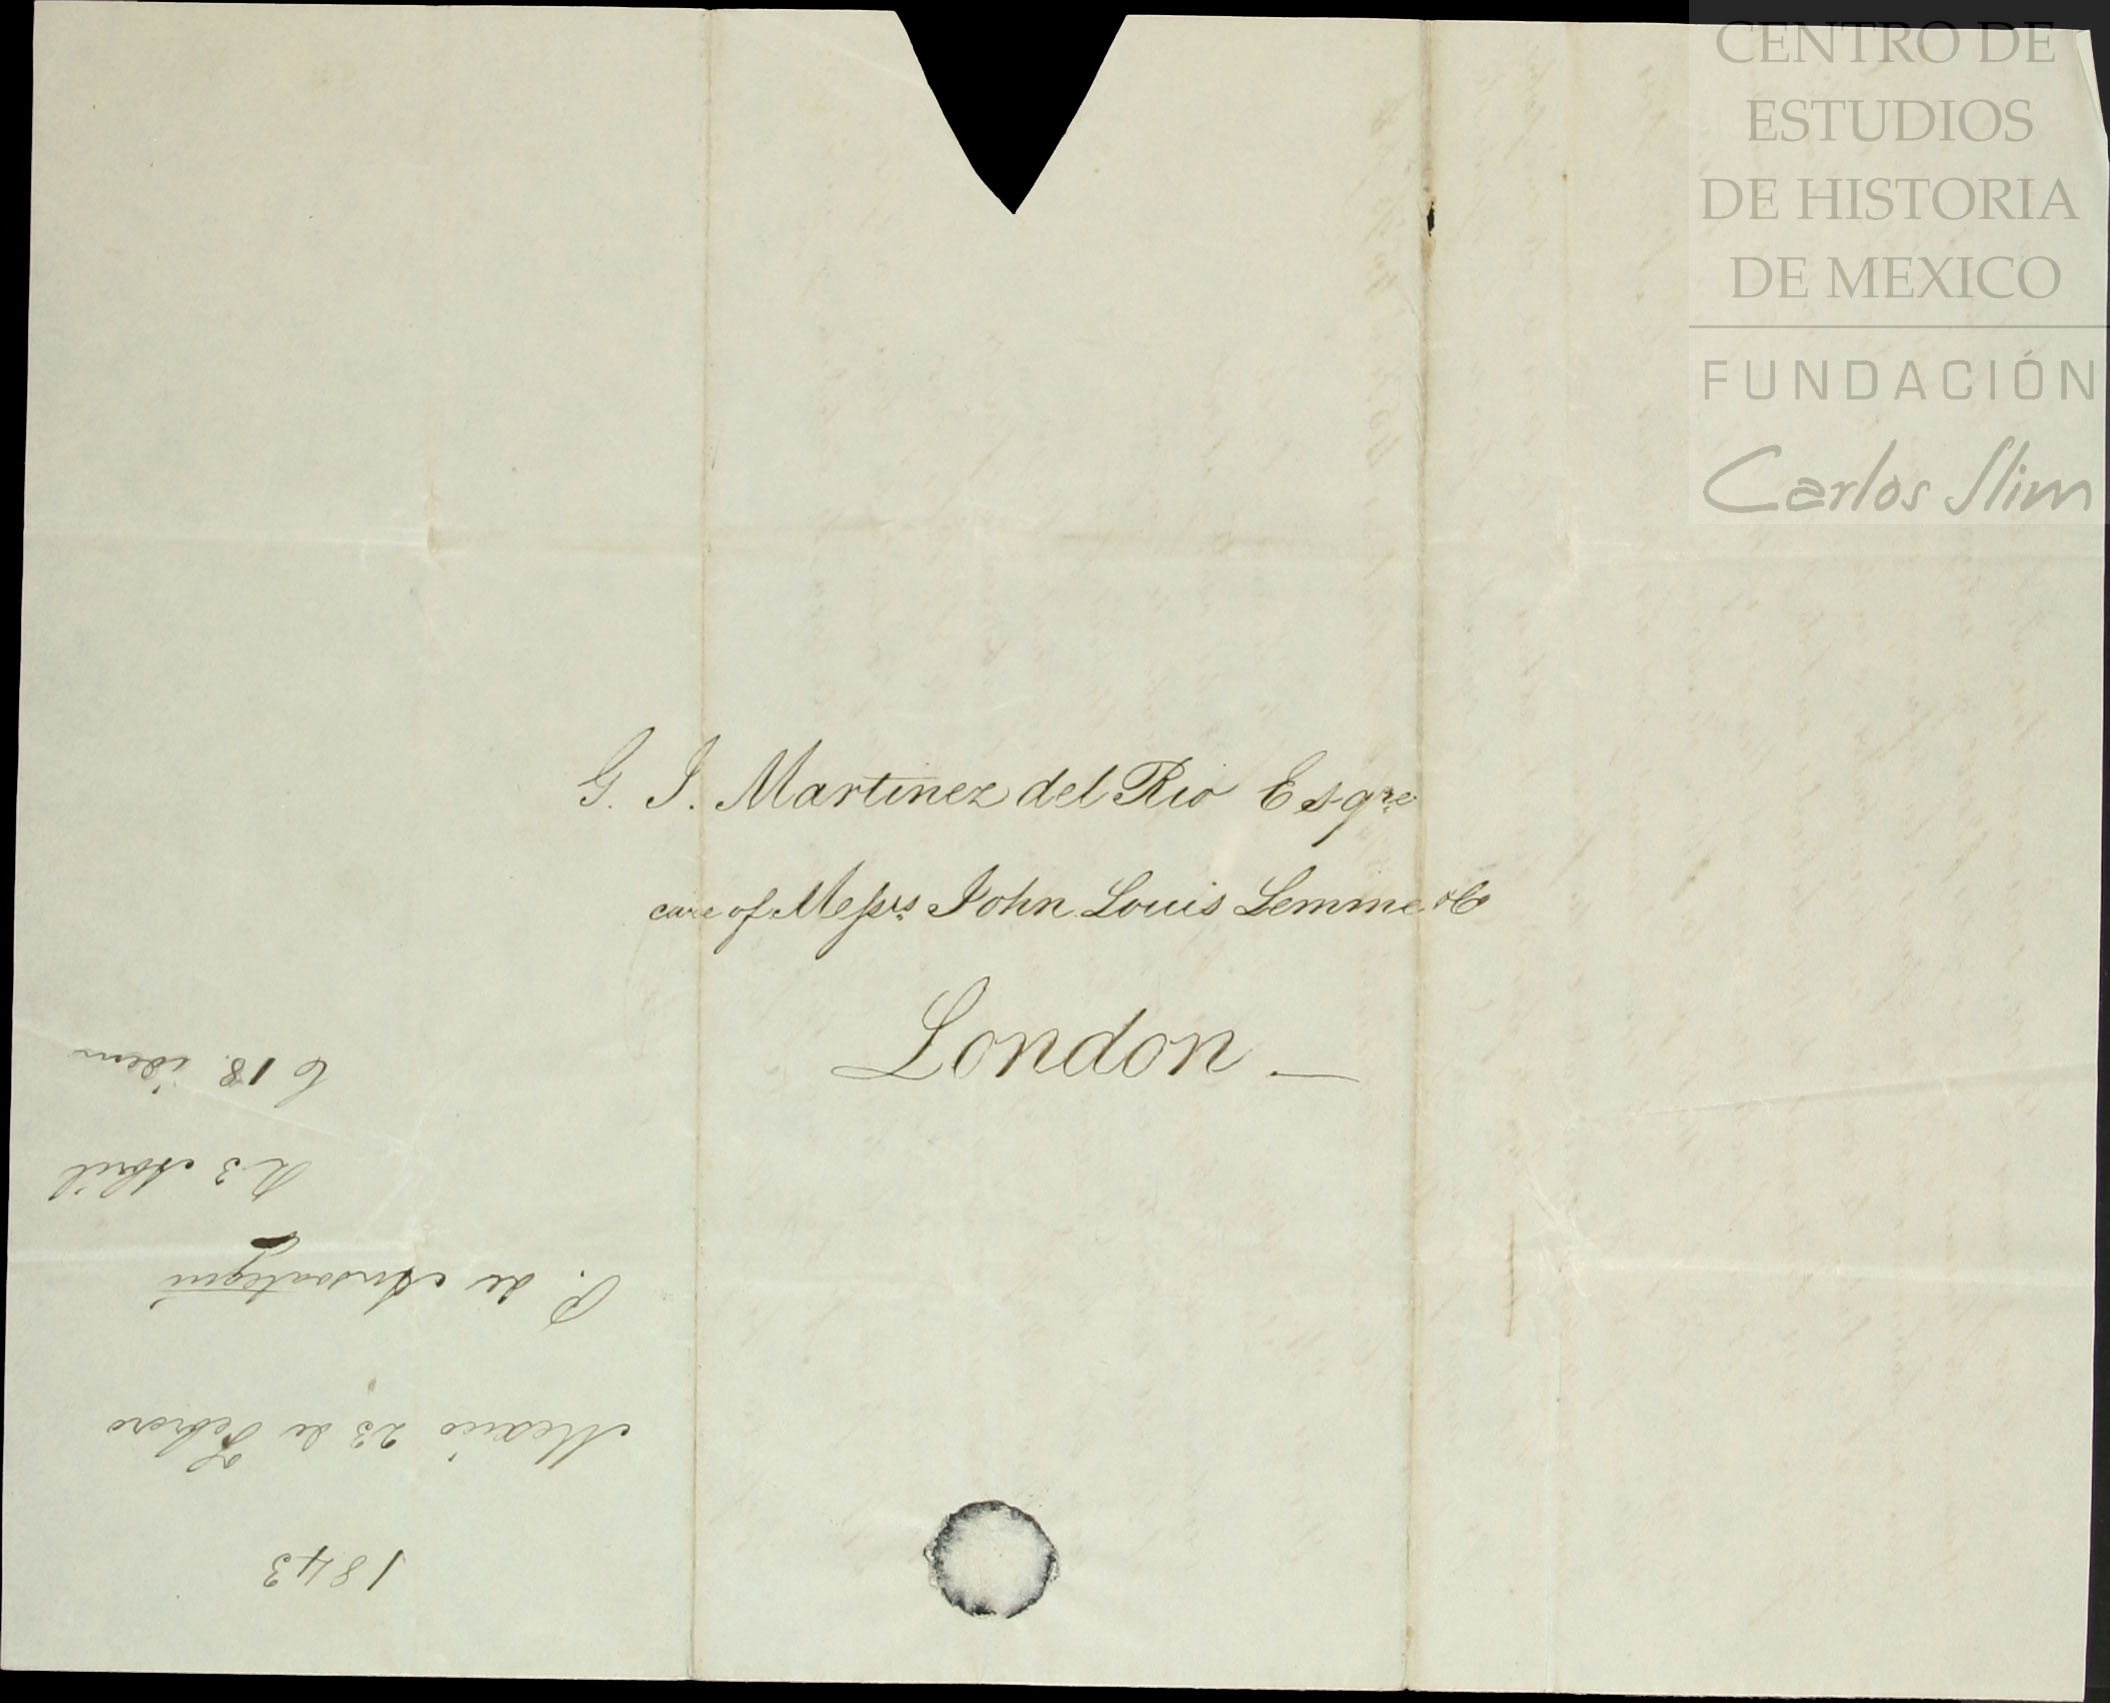 G. J. Martinez del Rio Esqre
care of Messrs John Louis Lemme & Co
London —
1843
Mexico 23 de Febrero
P. de Ansoategui
R 3 Abril
C 18 idem
CENTRO DE
ESTUDIOS
DE HISTORIA
DE MEXICO
FUNDACIÓN
Carlos Slim